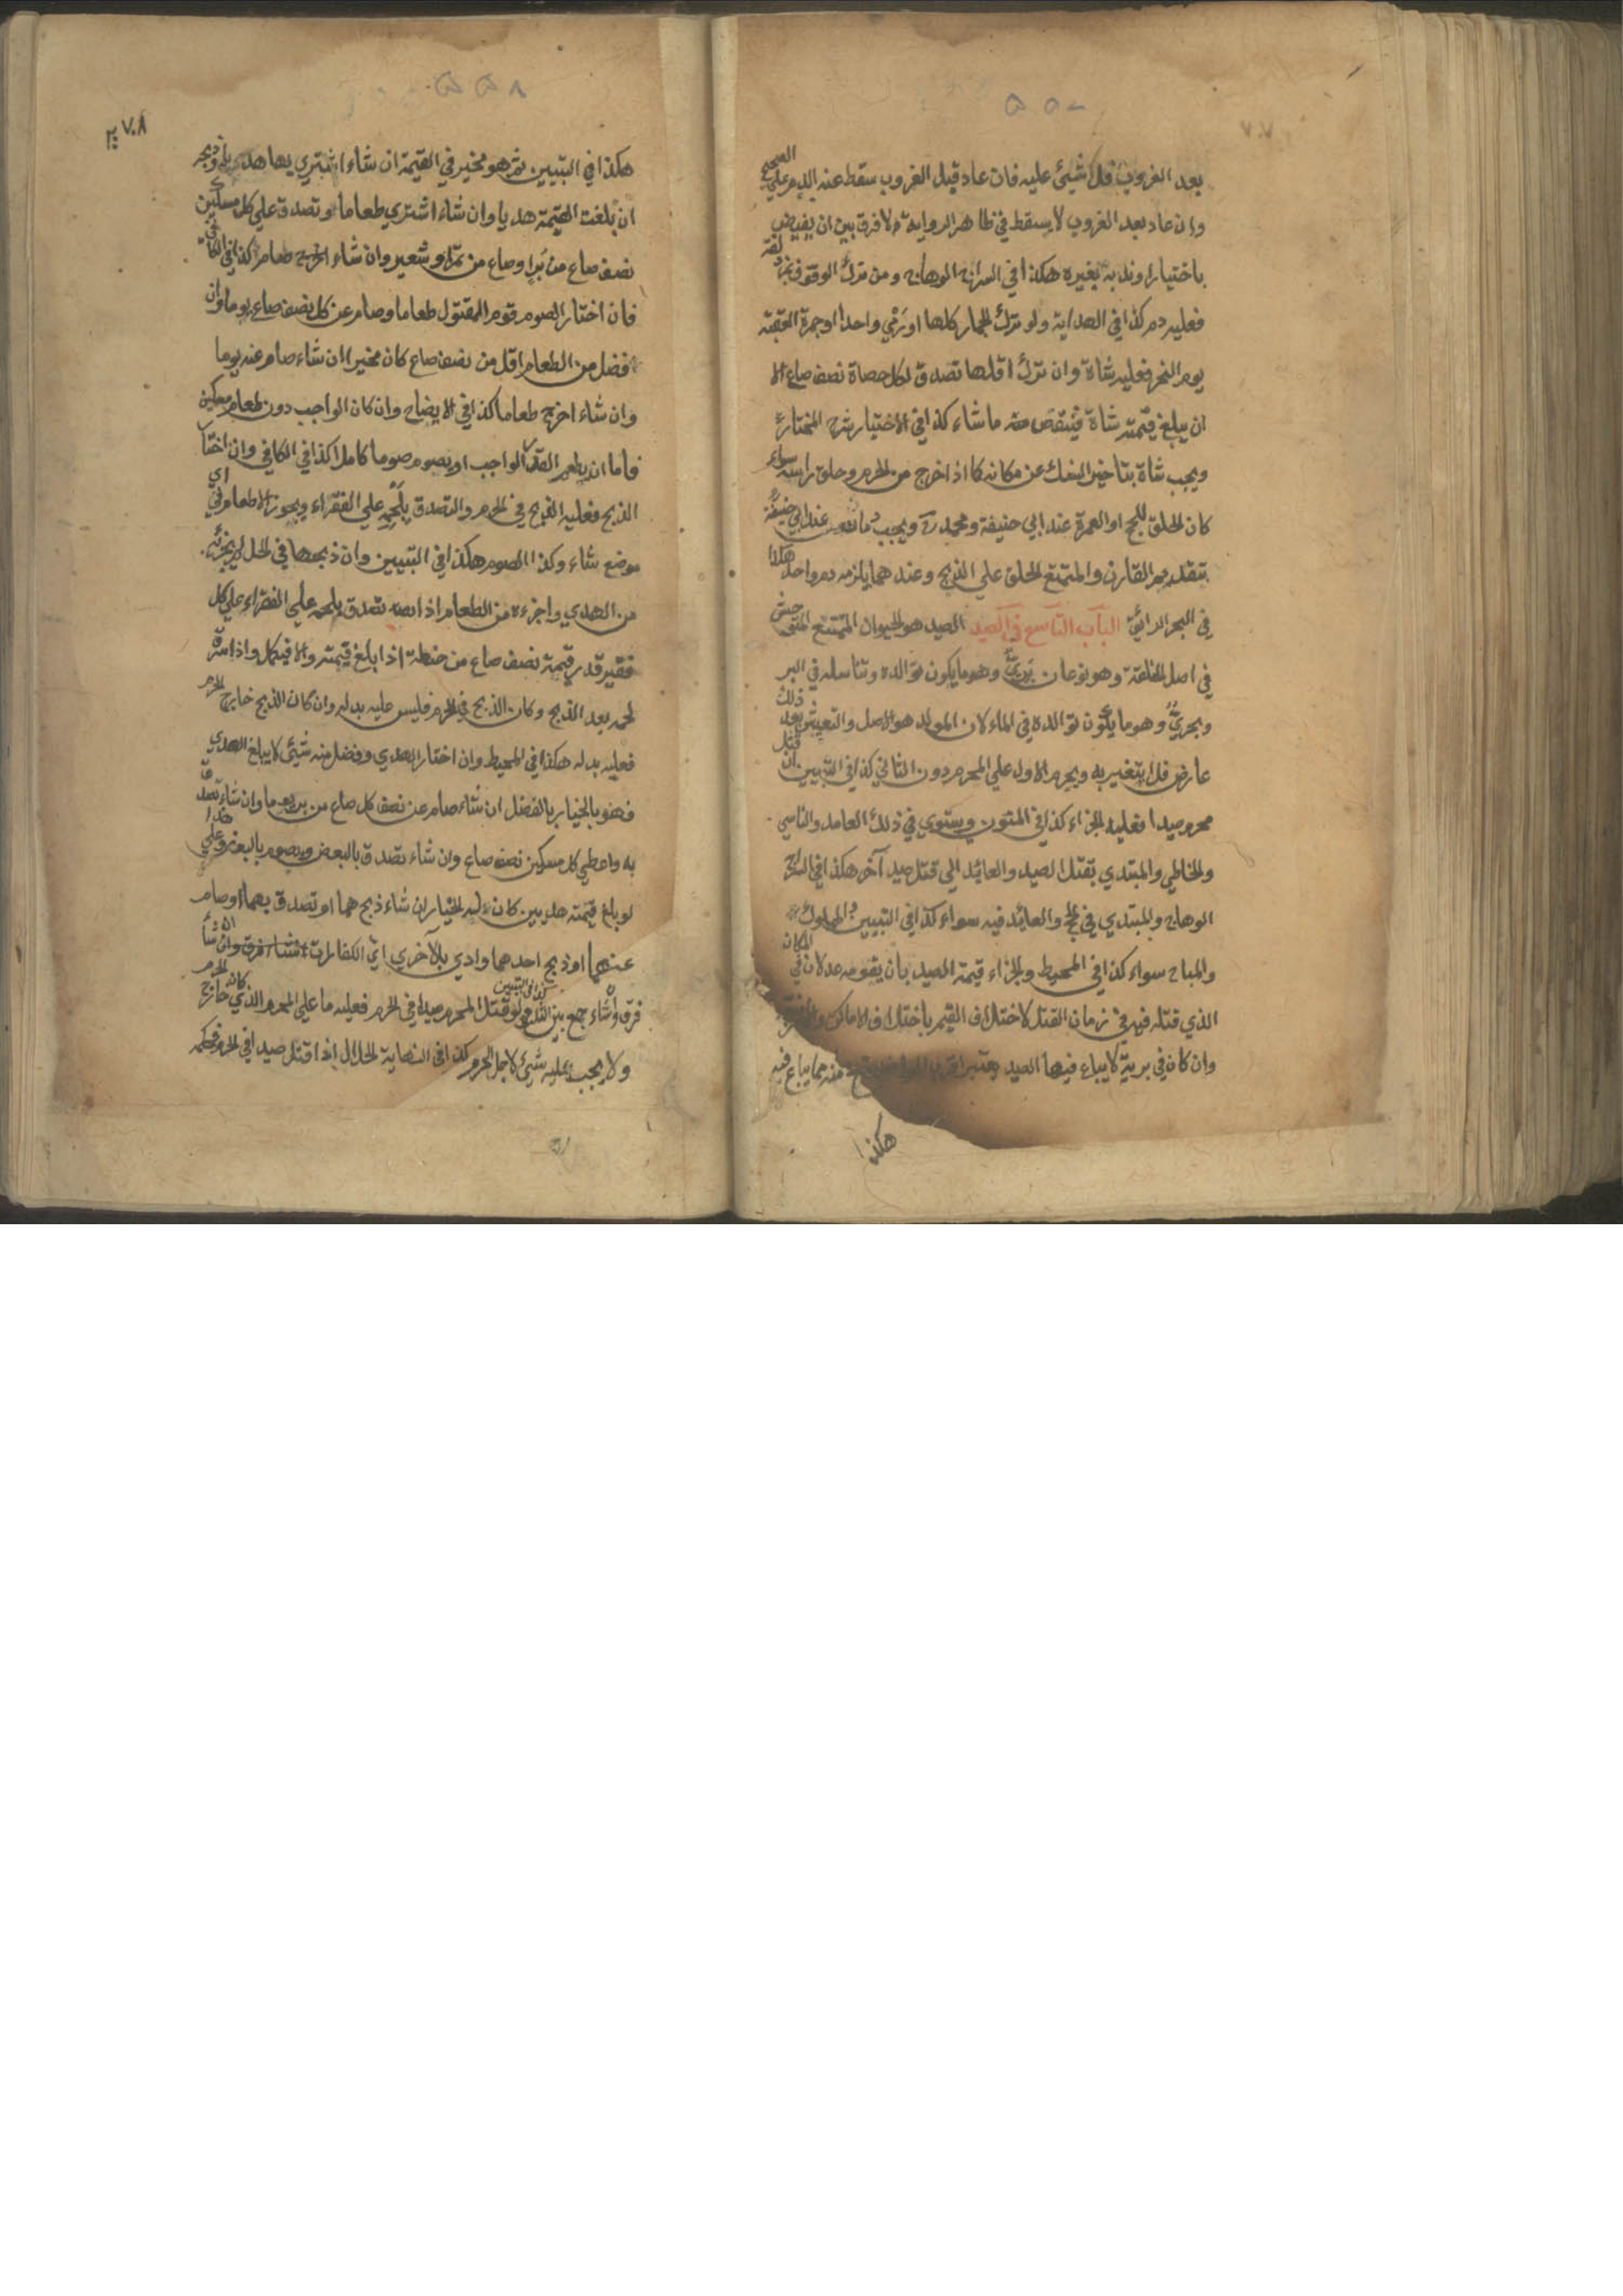 ٧٠٧
بعد الغروب فلا شيئ عليه فان عاد قبل الغروب سقط عنه الدم على الصحيح
وان عاد بعد الغروب لا يسقط في ظاهر الرواية ولا فرق بين ان يفيض
باختياره وند به بغيره هكذا في السراج الوهاج ومن ترك الوقوف بمزدلفة
فعليه دم كذا في الهداية ولو ترك الجمار كلها او رمي واحدا او جمرة العقبة
يوم النحر فعليه شاة وان ترك اقلها تصدق لكل حصاة نصف صاع الا
ان يبلغ قيمته شاة فينقص منه ما شاء كذا في الاختيار شرح المختار
ويجب شاة بتاخير النسك عن مكانه كما اذا خرج من الحرم وحلق راسه سواء
كان الحلق للحج او العمرة عند ابي حنيفة ومحمد رح ويجب دمان عند ابي حنيفة
بتقديم القارن والمتمتع الحلق علي الذبح وعندهما يلزمه دم واحد هكذا
في البحر الرائق الباب التاسع في الصيد الصيد هو الحيوان الممتنع المتوحش
في اصل الخلقة وهو نوعان بري وهو ما يكون توالده وتناسله في البر
وبحري وهو ما يكون توالده في الماء لان المولد هو الاصل والتعيش بعد ذلك
عارض فلا يتغير به ويحرم الاول علي المحرم دون الثاني كذا في التبيين ان قتل
محرم صيدا فعليه الجزاء كذا في المتون ويستوي في ذلك العامد والناسي
والخاطي والمبتدي بقتل الصيد والعائد الي قتل صيد آخر هكذا في السراج
الوهاج والمبتدي في الحج والعائد فيه سواء كذا في التبيين والمملوك
والمباح سواء كذا في المحيط والجزاء قيمة الصيد بان يقومه عدلان في المكان
الذي قتله فيه في زمان القتل لاختلاف القيم باختلاف الاماكن والازمنة
وان كان في برية لا يباع فيها الصيد يعتبر اقرب المواضع منه مما يباع فيه
هكذا
٧٠٨
هكذا في التبيين ثم هو مخير في القيمة ان شاء اشتري بها هديا وذبحه
ان بلغت القيمة هديا وان شاء اشتري طعاما وتصدق علي كل مسكين
نصف صاع من بر او صاع من تمر او شعير وان شاء صام كذا في الكافي
فان اختار الصوم قوم المقتول طعاما وصام عن كل نصف صاع يوما وان
فضل من الطعام اقل من نصف صاع كان مخيرا ان شاء صام عنه يوما
وان شاء اخرج طعاما كذا في الايضاح وان كان الواجب دون طعام مسكين
فاما ان يطعم القدر الواجب او يصوم صوما كاملا كذا في الكافي وان اختار
الذبح فعليه الذبح في الحرم والتصدق بلحمه علي الفقراء ويجوز الاطعام في اي
موضع شاء وكذا الصوم هكذا في التبيين وان ذبحها في الحل لا يجزئه
من الهدي واجزءه من الطعام اذا تصدق بلحمه علي الفقراء علي كل
فقير قدر قيمة نصف صاع من حنطة اذا بلغ قيمته والا فيكمل واذا سرق
لحمه بعد الذبح وكان الذبح في الحرم فليس عليه بدله وان كان الذبح خارج الحرم
فعليه بدله هكذا في المحيط وان اختار الهدي وفضل منه شيئ لا يبلغ الهدي
فهو بالخيار بالفضل ان شاء صام عن نصف كل صاع من بر يوما وان شاء تصدق
به واعطي كل مسكين نصف صاع وان شاء تصدق بالبعض ويصوم بالبعض وعلي هذا
لو بلغ قيمته هديين كان له الخيار ان شاء ذبحهما او تصدق بهما او صام
عنهما او ذبح احدهما وادي بالآخر اي الكفارات شاء
فرق وان شاء جمع بين الثلاث كذا في التبيين ولو قتل المحرم صيدا في الحرم فعليه ما علي المحرم الذي كان خارج الحرم
ولا يجب عليه شيئ لاجل الحرم كذا في النهاية الحلال اذا قتل صيدا في الحرم فحكمه